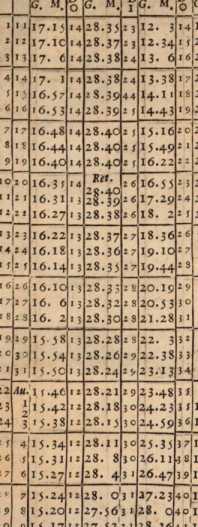 G. M. G. M. G. M.
1 11 17.15 14 28.35 23 12. 3 14
2 12 17.10 14 28.37 23 12.34 15
3 13 17. 6 14 28.38 24 13. 6 16
4 14 17. 1 14 28.38 24 13.38 17
5 15 16.57 14 28.39 44 14.11 18
6 16 16.53 14 28.39 25 14.43 19
7 17 16.48 14 28.40 25 15.16 20
8 18 16.44 14 28.40 25 15.49 21
9 19 16.40 14 28.40 25 16.22 22
Ret.
10 20 16.35 14 28.40 26 16.55 23
11 21 16.31 13 28.39 26 17.29 24
12 22 16.27 13 28.38 26 18. 2 25
13 23 16.22 13 28.37 26 18.36 26
14 24 16.18 13 28.36 27 19.10 27
15 25 16.14 13 28.35 27 19.44 28
16 26 16.10 13 28.33 28 20.19 29
17 27 16. 6 13 28.32 28 20.53 30
18 28 16. 2 13 28.30 28 21.28 31
19 29 15.58 13 28.28 28 22. 3 32
20 30 15.54 13 28.26 29 22.38 33
21 31 15.50 13 28.24 29 23.13 34
22 Au. 15.46 12 28.21 29 23.48 35
23 1 15.42 12 28.18 30 24.23 35
24 3 15.38 12 28.15 30 24.59 36
25 4 15.34 12 28.11 30 25.35 37
26 5 15.31 12 28. 8 30 26.11 38
27 6 15.27 12 28. 4 31 26.47 39
8 15.24 12 28. 0 31 27.23 40
9 15.20 12 27.56 31 28. 0 40